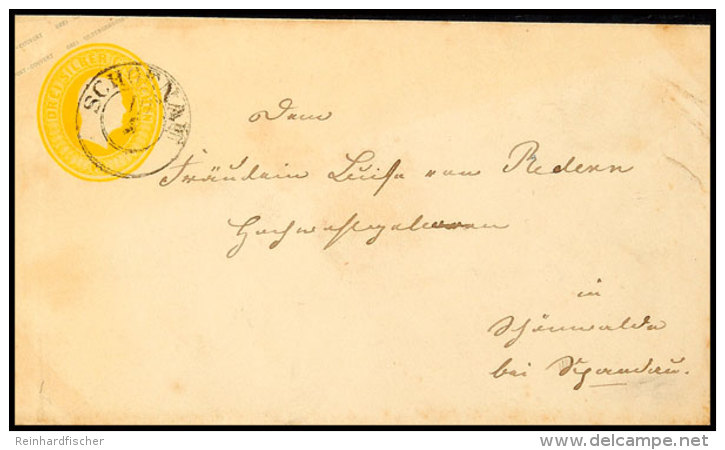 DREI SILBERGROSCHEN
SCHOENAU
Dem
Fräulein Luise von Redern
Hochwohlgeboren
in
Schönwalde
bei Spandau.
Reinhardfischer
delcampe.net